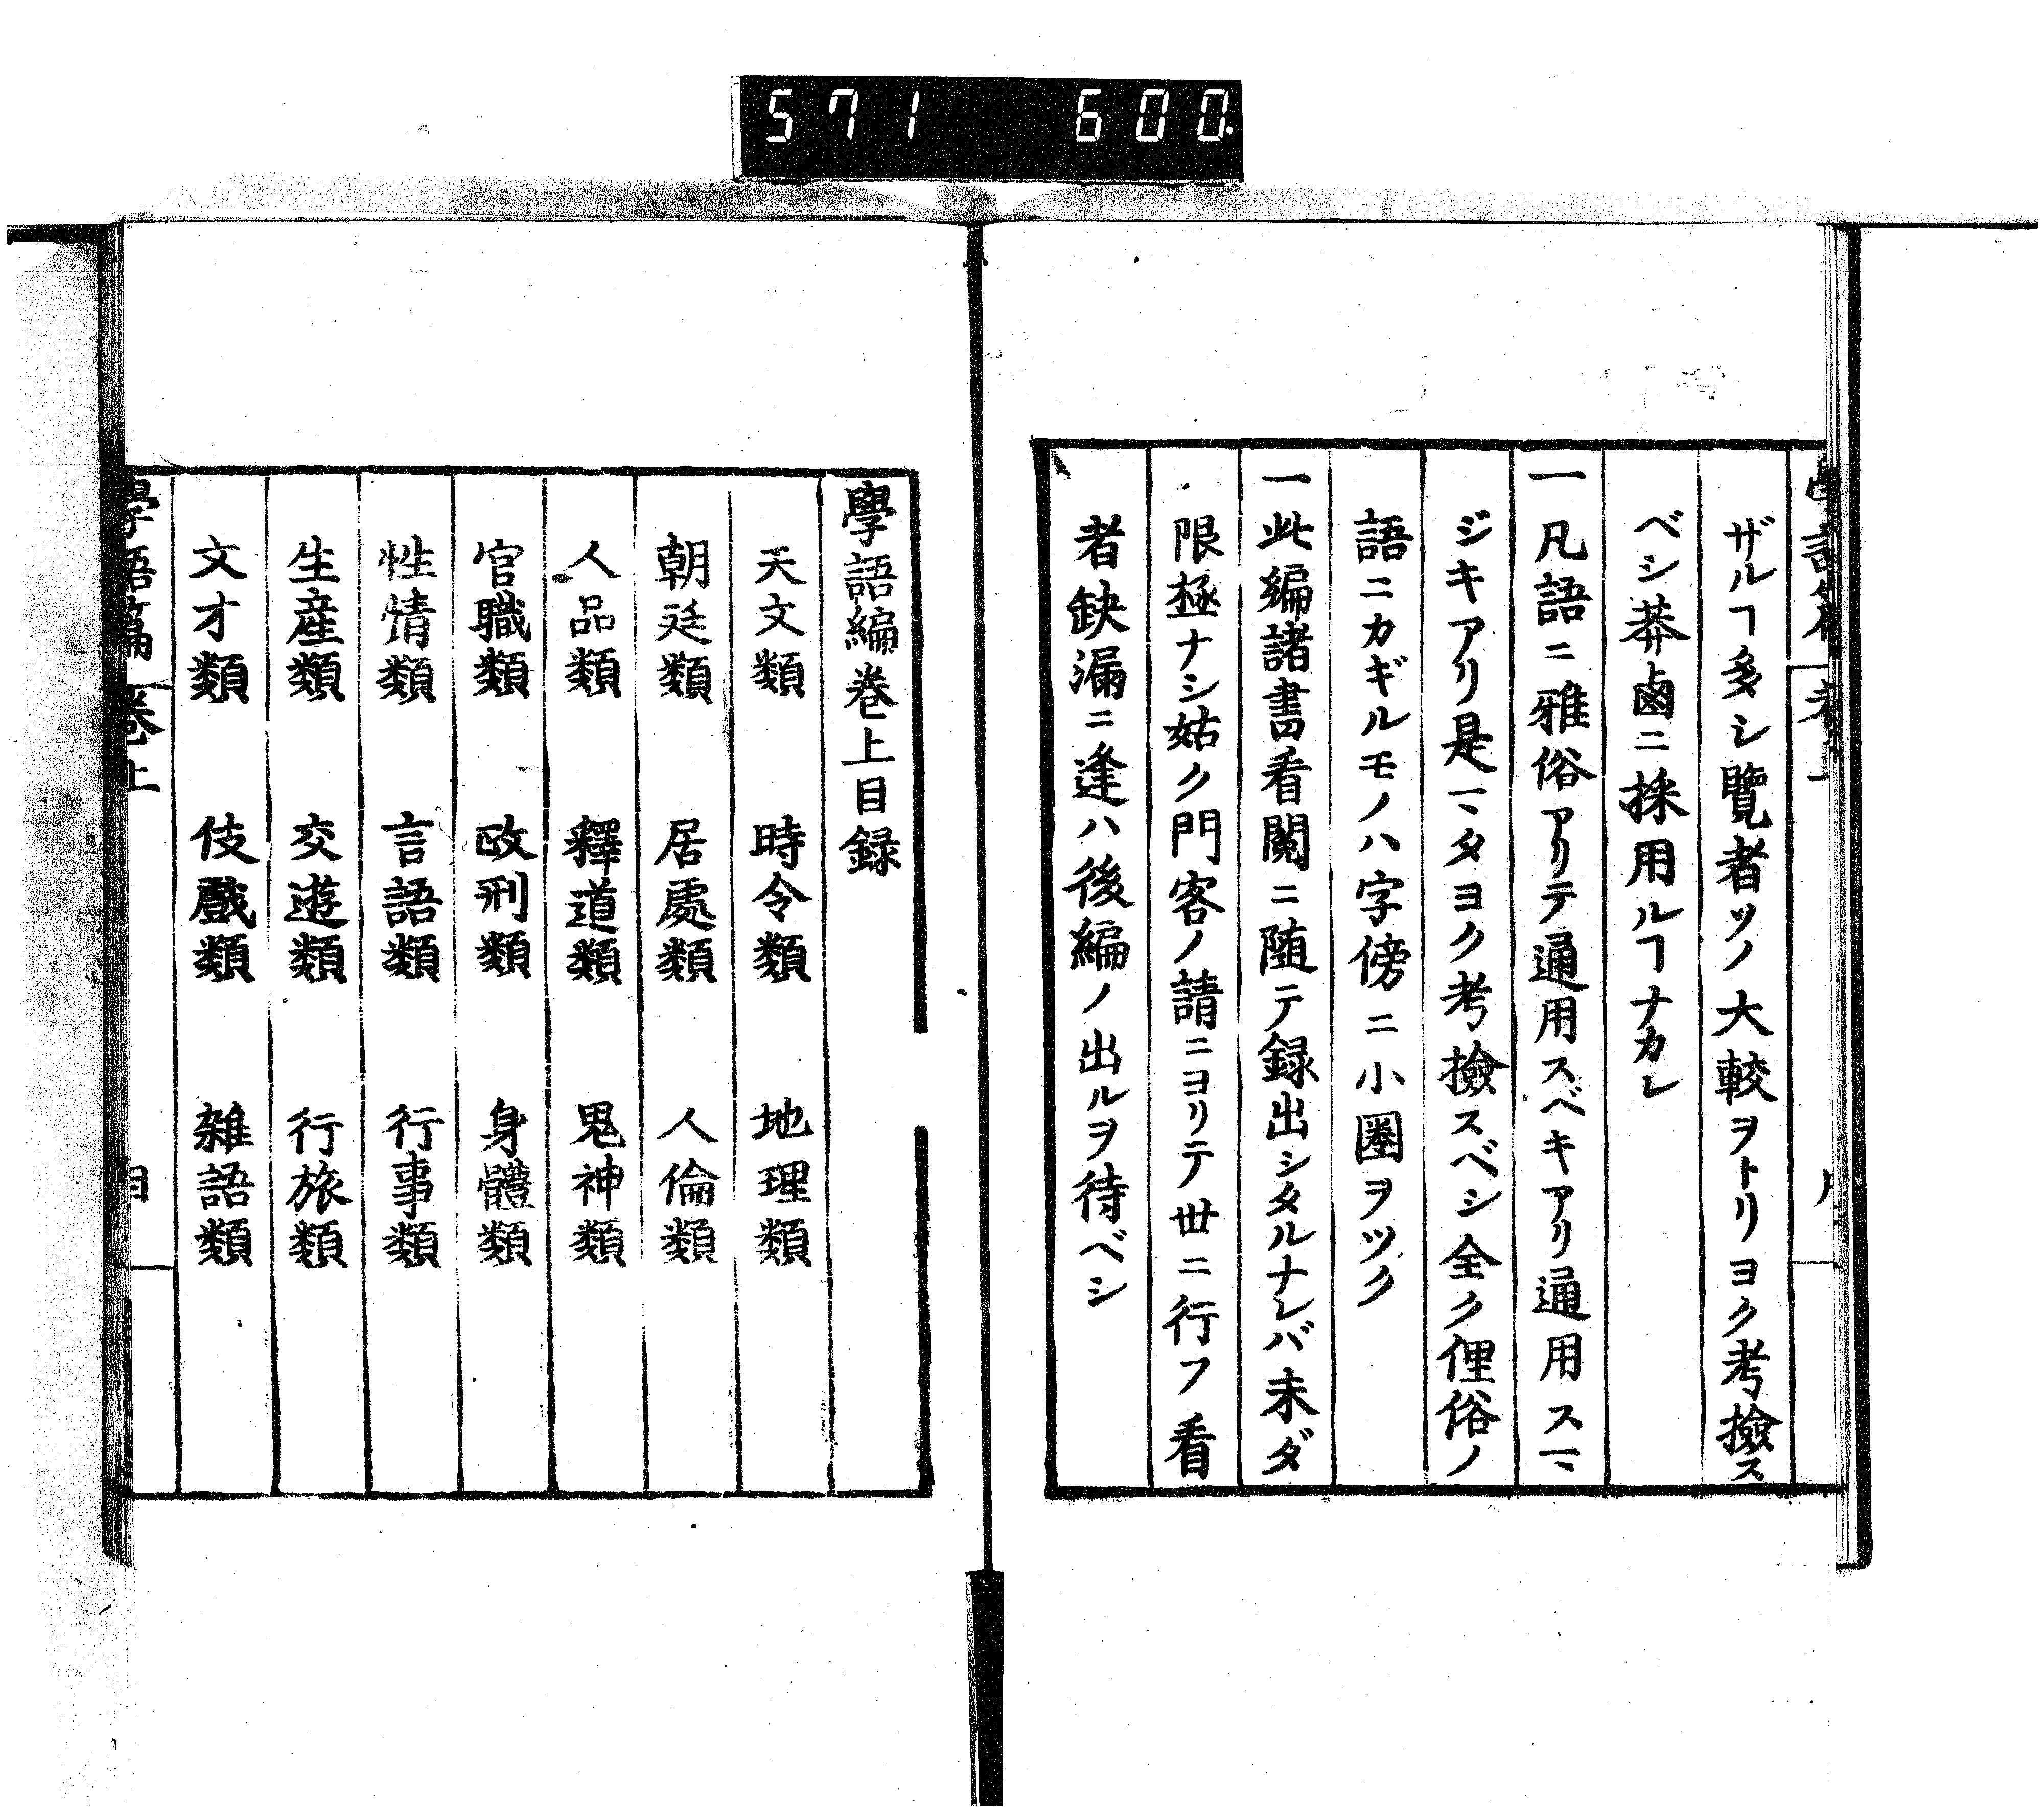 571 600.
ザルヿ多シ覽者ソノ大較ヲトリヨク考撿ス
ベシ莽鹵ニ採用ルヿナカレ
一凡語ニ雅俗アリテ通用スベキアリ通用スマ
ジキアリ是マタヨク考撿スベシ全ク俚俗ノ
語ニカギルモノハ字傍ニ小圏ヲツク
一此編諸書看閲ニ随テ録出シタルナレバ未ダ
限極ナシ姑ク門客ノ請ニヨリテ世ニ行フ看
者缺漏ニ逢ハ後編ノ出ルヲ待ベシ
學語編巻上目録
天文類 時令類 地理類
朝廷類 居處類 人倫類
人品類 釋道類 鬼神類
官職類 政刑類 身體類
性情類 言語類 行事類
生産類 交遊類 行旅類
文才類 伎戲類 雑語類
學語篇 巻上 目